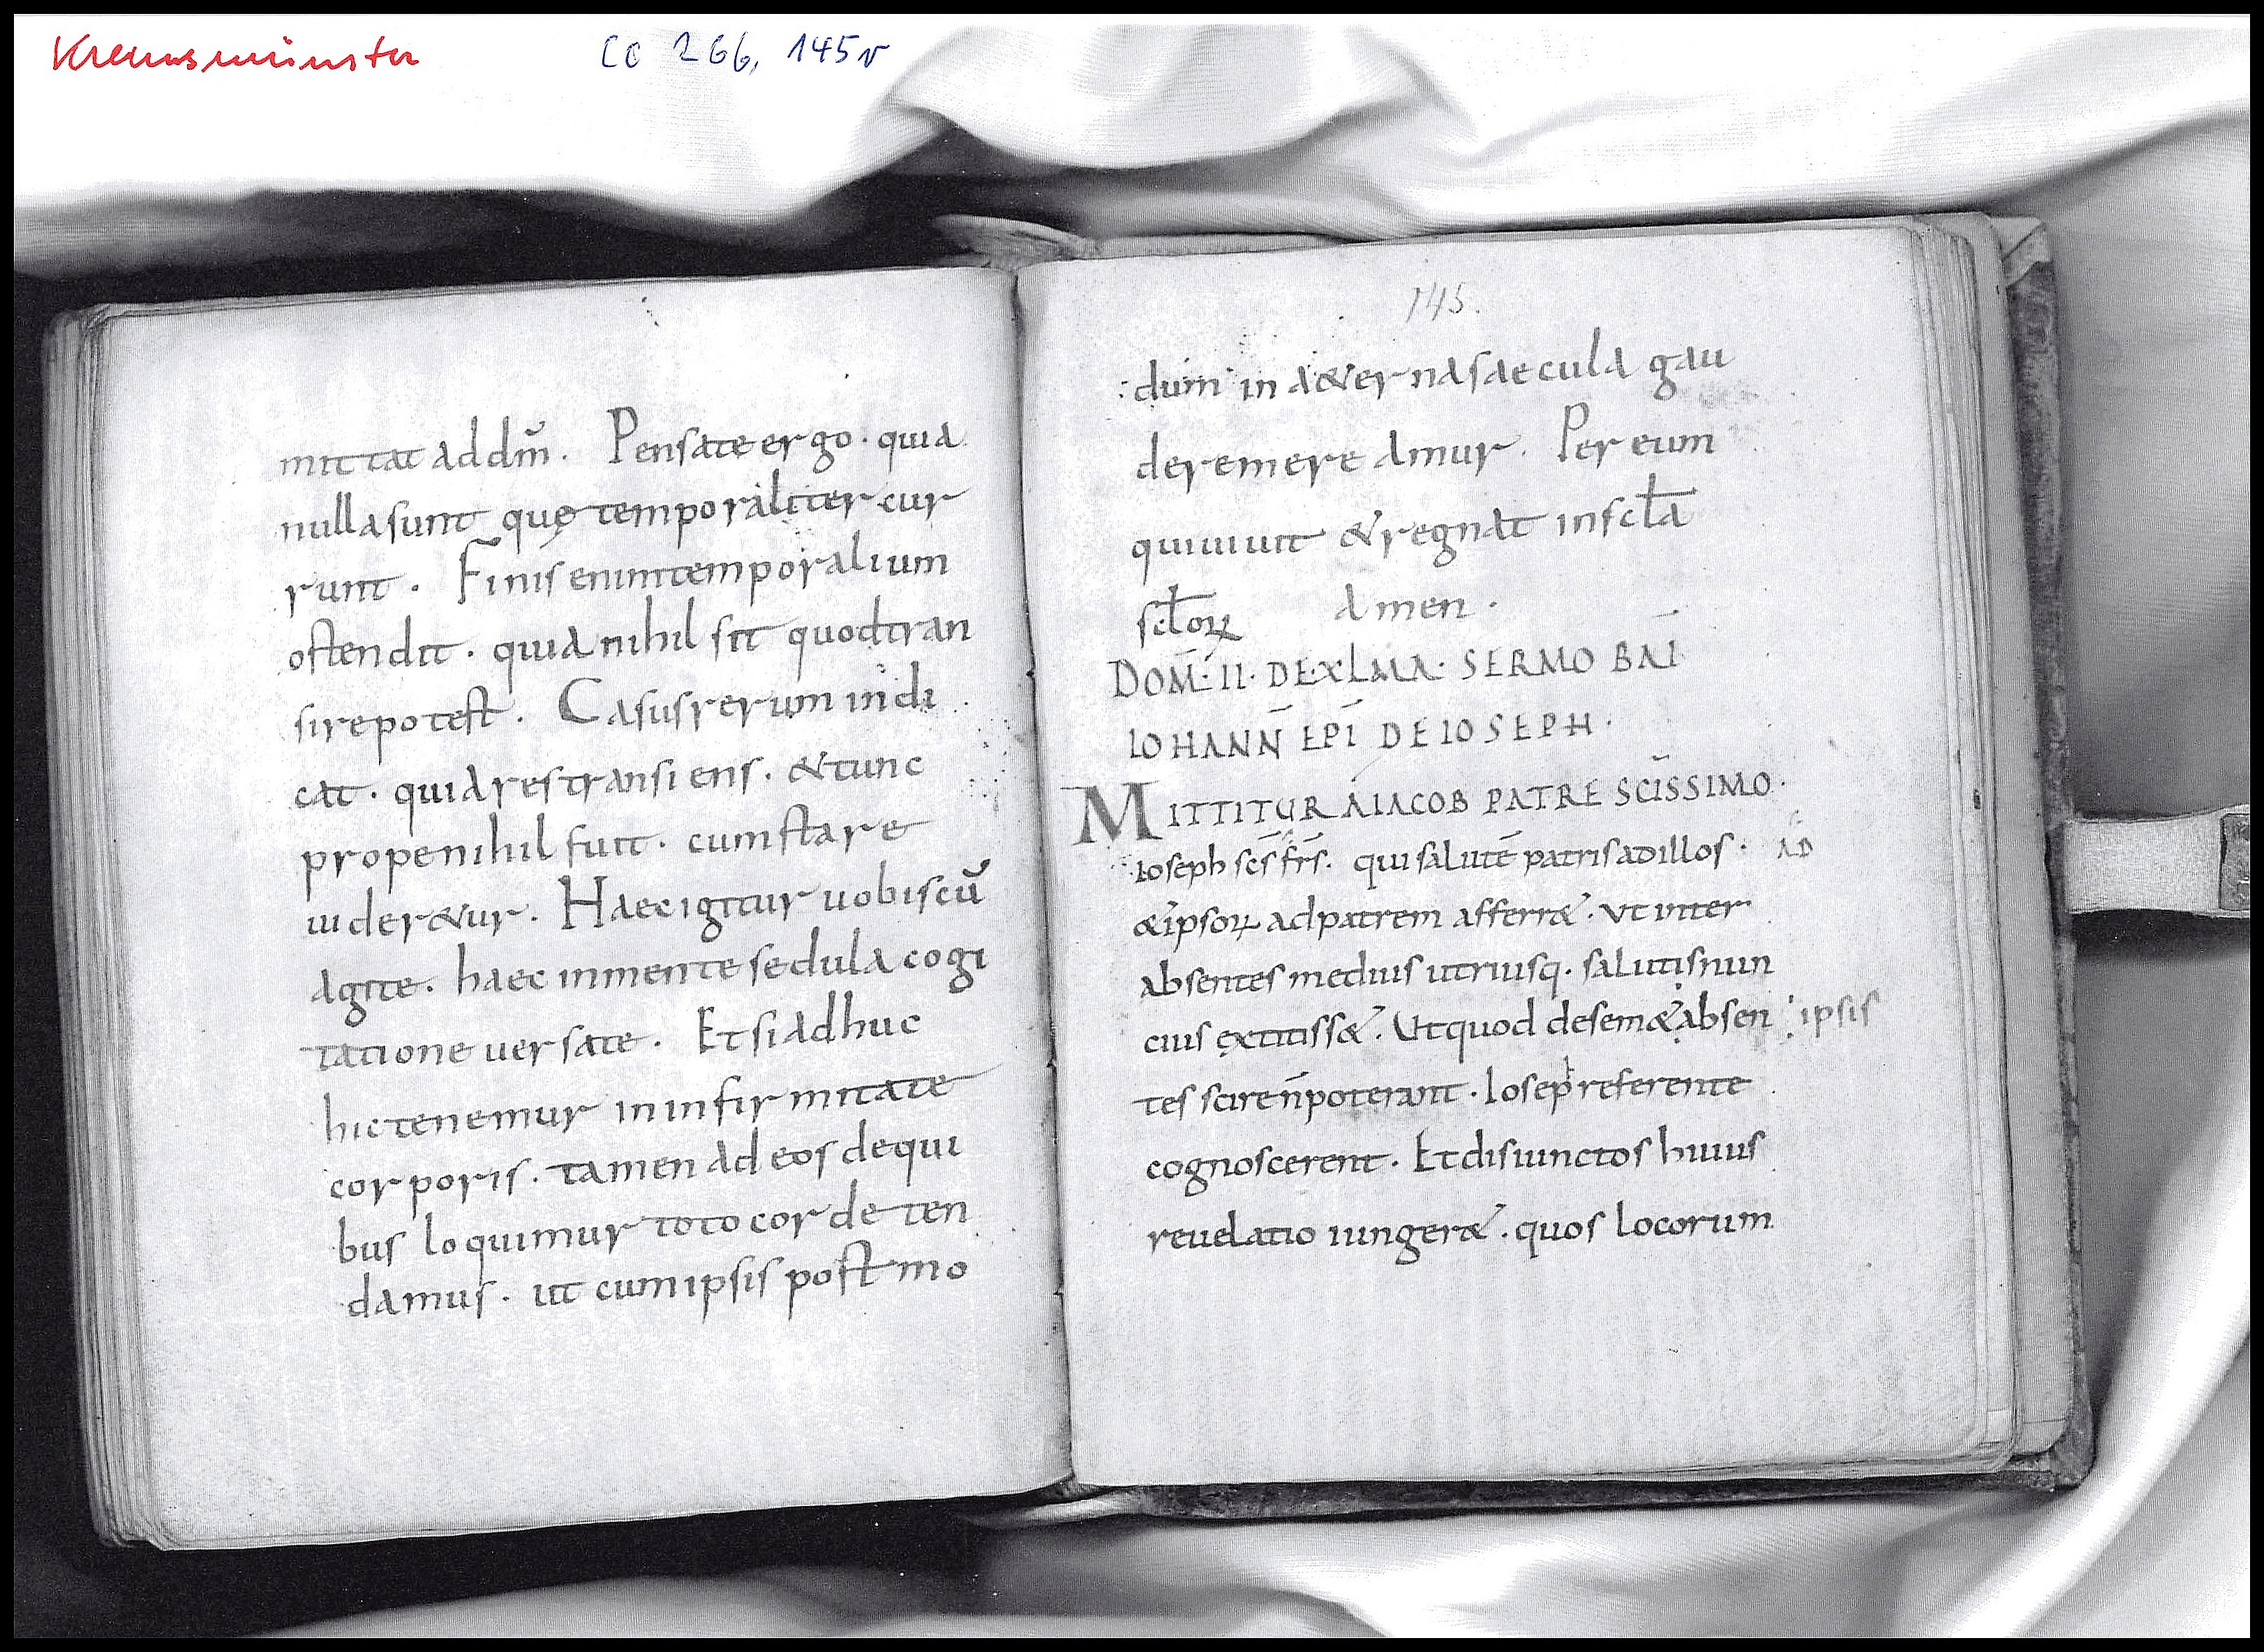 Kremsmünster
CC 266, 145v
mittat ad dm̄. Pensate ergo · quia
nulla sunt quę temporaliter cur
runt . Finis enim temporalium
ostendit · quia nihil sit quod tran
sire potest . Casus rerum indi
cat · quia res transiens · & tunc
prope nihil fuit · cum stare
uider&ur . Haec igitur uobiscū
agite · haec in mente sedula cogi
tatione uersate . Et si adhuc
hic tenemur in infirmitate
corporis . tamen ad eos de qui
bus loquimur toto corde ten
damus . ut cum ipsis post mo
145.
dum in a&erna saecula gau
dere mereamur . Per eum
qui uiuit & regnat in scl̄a
scl̄oꝝ amen .
DOM̄ · II · DE XLMA · SERMO BĀI
IOHANN̄ EPĪ DE IOSEPH .
MITTITUR A IACOB PATRE SCĪSSIMO .
Ioseph scs̄ frs̄ . qui salutē patris ad illos · AD
& ipsoꝝ ad patrem afferr& . ut inter
absentes medius utriusq; salutis nun
cius extitiss& . Ut quod de sem& absen ipsis
tes scire n̄ poterant . Iosep h referente
cognoscerent . Et disiunctos huius
reuelatio iunger& . quos locorum